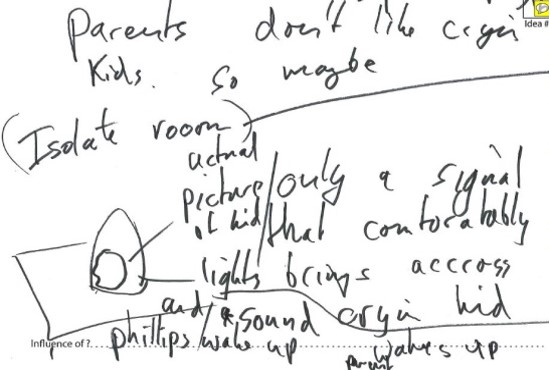 Idea #
Parents don't like cryin
Kids. So maybe
(Isolate rooom)
actual
picture / only a signal
of kid / that comforatably
lights brings accross
and / sound cryin kid
Influence of ?
phillips / wake up wakes up
parent